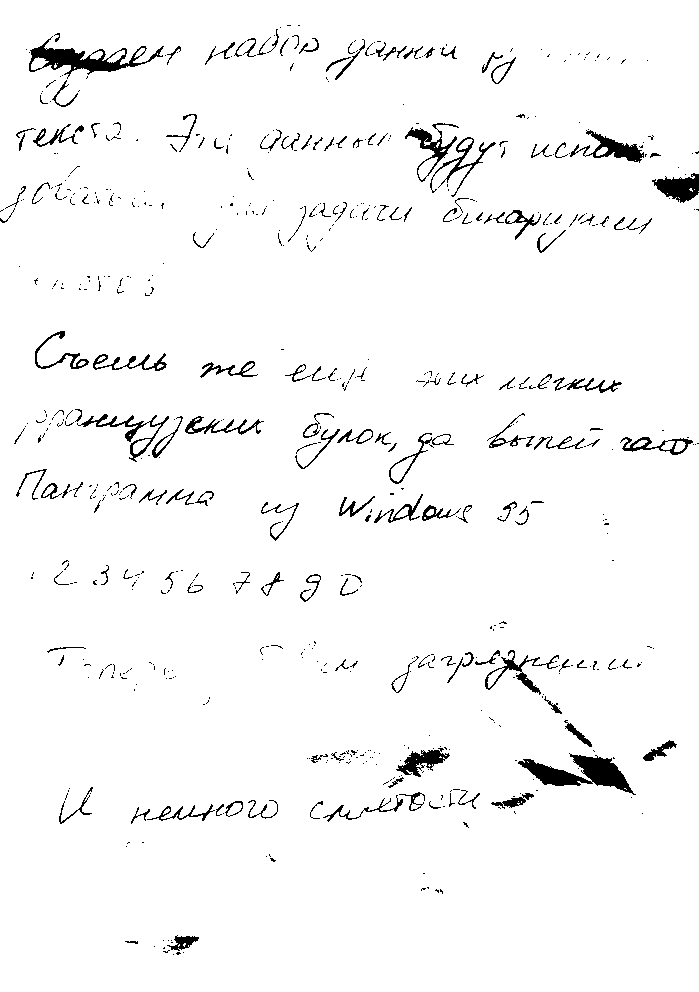 Создаем набор данных
текста. Эти данные будут исполь-
зоваться для задачи бинаризации
Съешь же ещё этих мягких
французских булок, да выпей чаю
Панграмма из Windows 95
1234567890
Теперь, загрязнений
И немного смятости